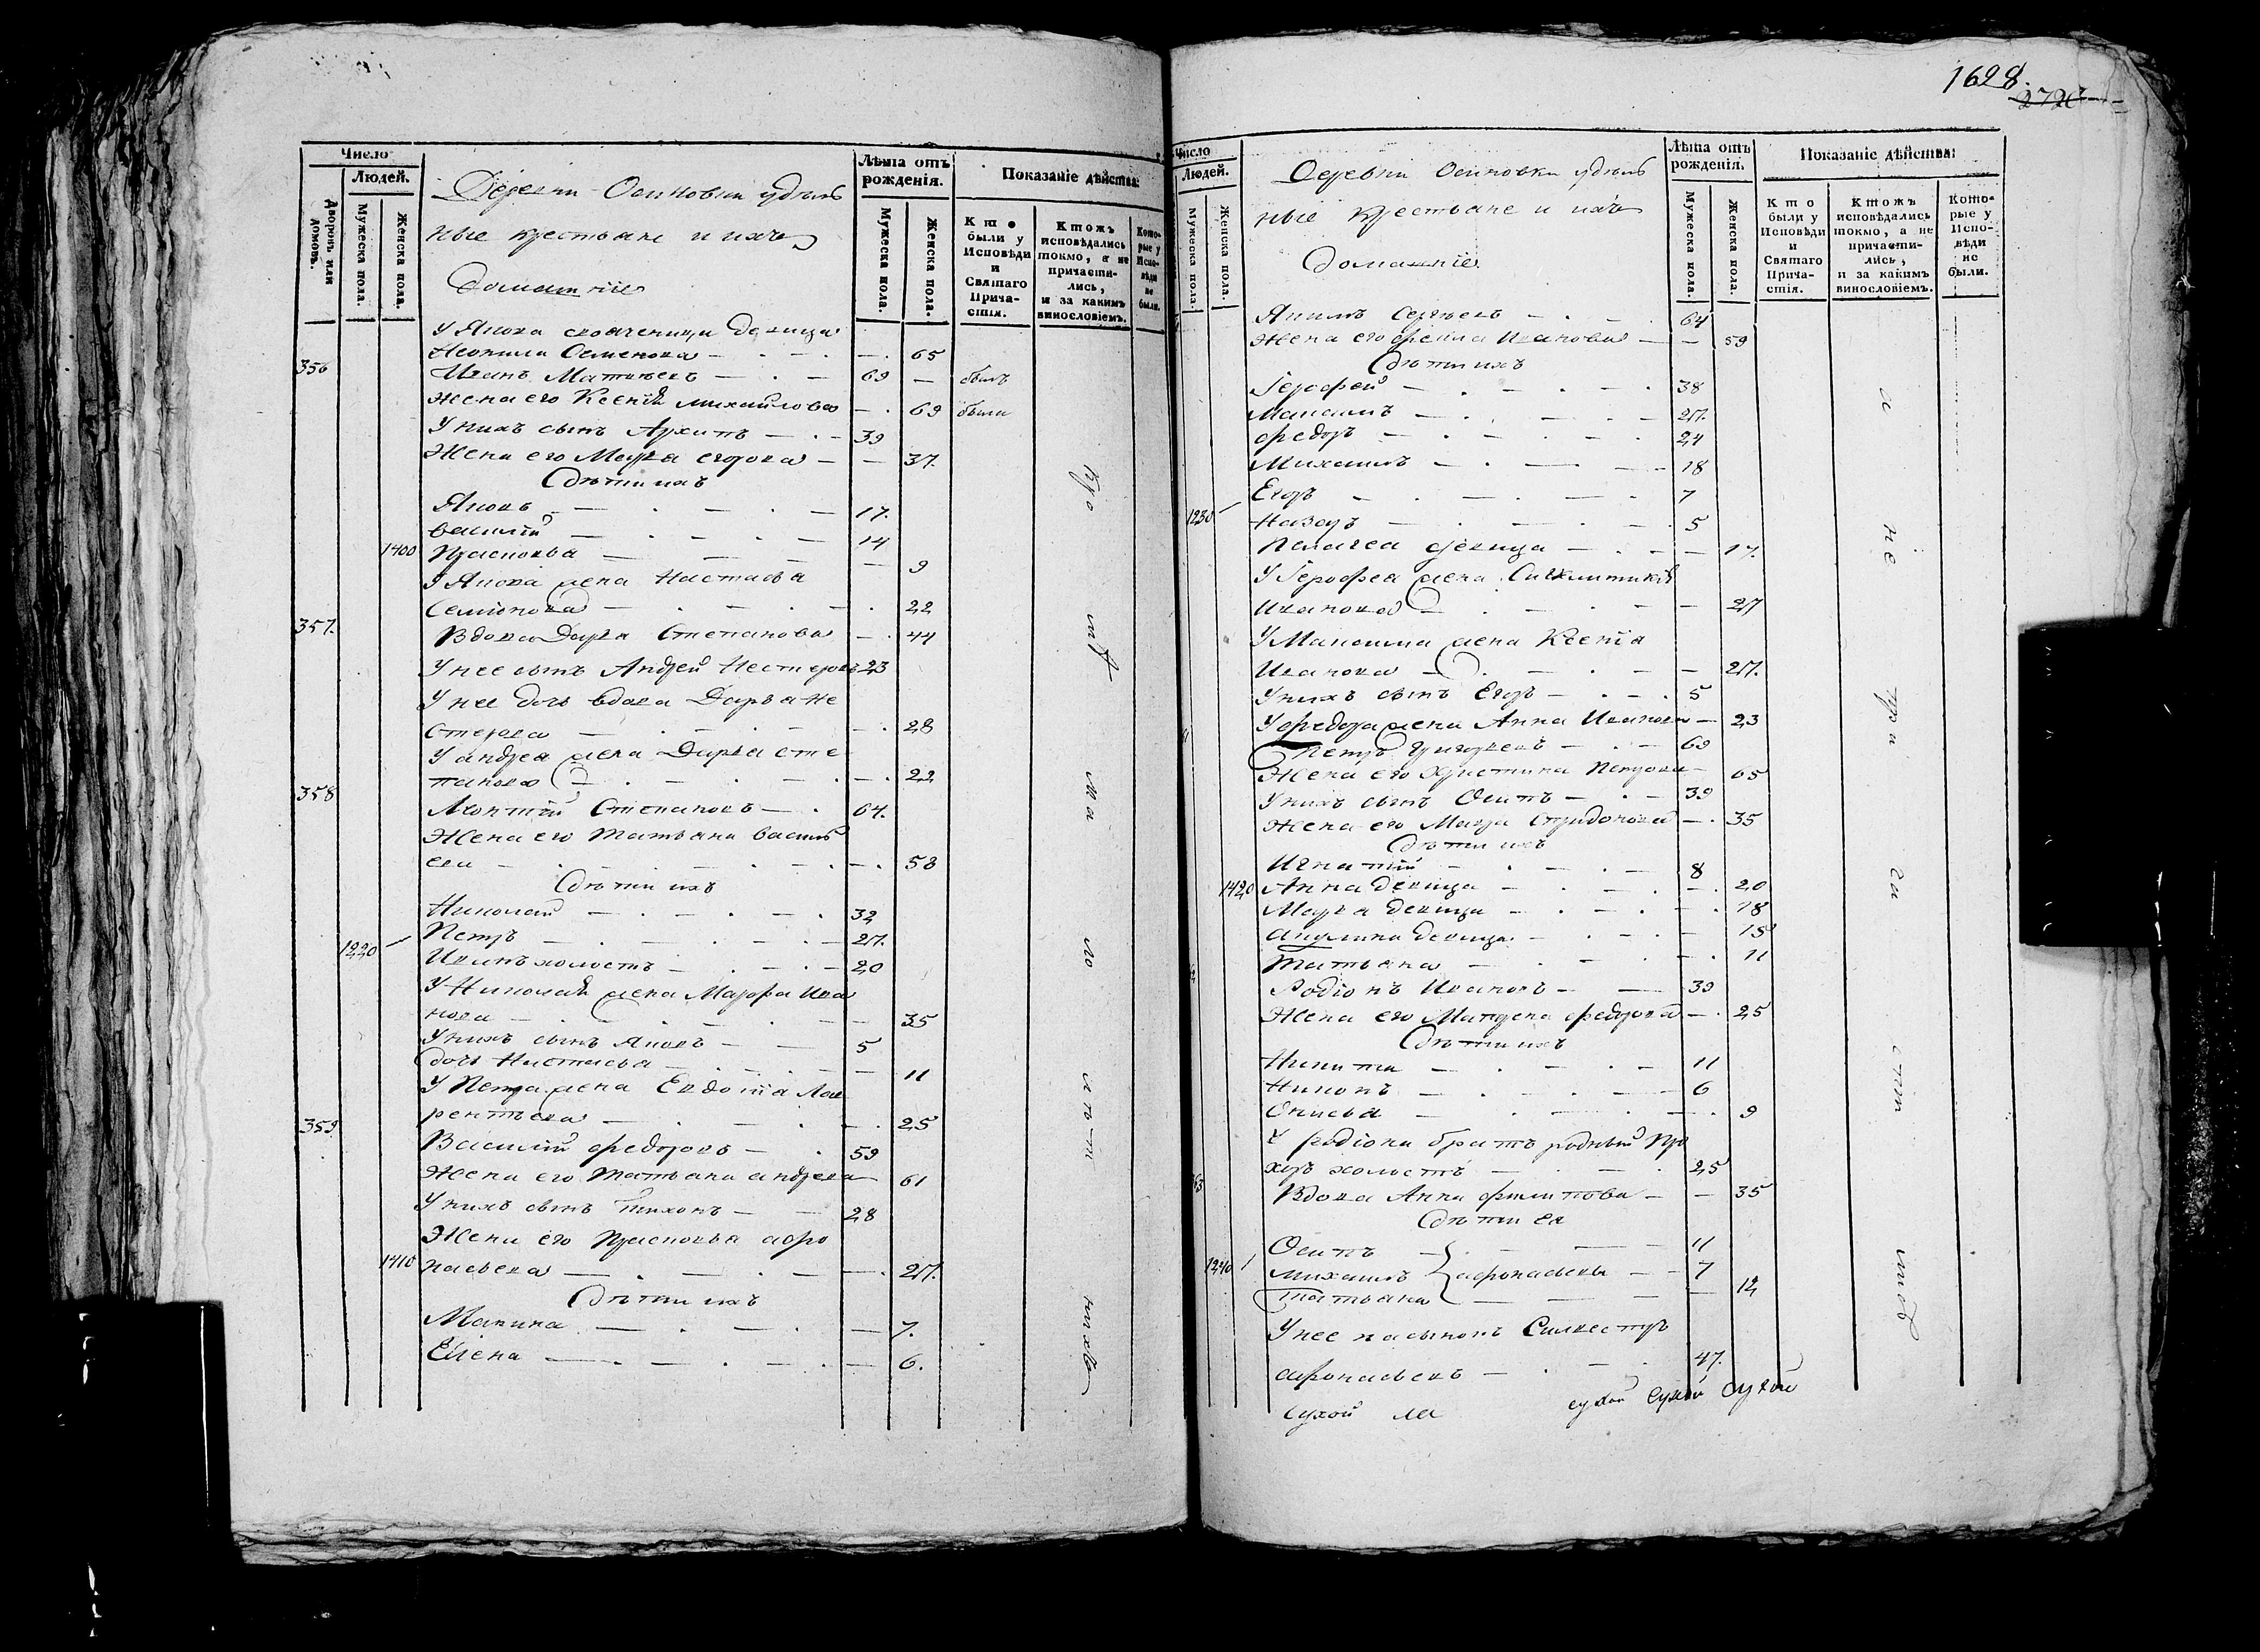 Число
Людей.
Дворовъ или домовъ.
Мужеска пола.
Женска пола.
Деревни Осиновки удѣль
ные крестьяне и ихъ
домашніе
Лѣта отъ рожденія.
Мужеска пола.
Женска пола.
Показаніе дѣйства:
Кто были у Исповѣди и Святаго Причастія.
Ктожъ исповѣдались токмо, а не причастились, и за какимъ винословіемъ.
Которые у Исповѣди не были.
У Якова свояченица девица
Неонила Семенова — 65
356 Иванъ Матвеевъ — 69 — былъ
Жена его Ксенія Михайлова — 69 была
У нихъ сынъ Архипъ — 39
Жена его Марѳа Егорова — 37.
Дѣти ихъ
Яковъ — 17.
Василій — 14
1400 Прасковья — 9
У Якова жена Настасья
Семіонова — 22
357. Вдова Дарья Степанова — 44
У нее сынъ Андрей Нестеровъ 23
У нее дочь вдова Дарья Не
стерова — 28
У Андрея жена Дарья Сте
панова — 22
358 Леонтій Степановъ — 64.
Жена его Татьяна Василь
ева — 58
Дѣти ихъ
Николай — 32
Петръ — 27.
1220 Иванъ холостъ — 20
У Николая жена Марфа Ива
нова — 35
У нихъ сынъ Яковъ — 5
дочь Настасья — 11
У Петра жена Евдотія Лав
рентьева — 25
359 Василій Федоровъ — 59
Жена его Татьяна Андреева 61
У нихъ сынъ Тихонъ — 28
Жена его Прасковья Афо
1410 насьева — 27.
Дѣти ихъ
Макина — 7.
Елена — 6.
1628
2726
Число
Людей.
Мужеска пола.
Женска пола.
Деревни Осиновки удѣль
ные крестьяне и ихъ
домашніе
Лѣта отъ рожденія.
Мужеска пола.
Женска пола.
Показаніе дѣйства:
Кто были у Исповѣди и Святаго Причастія.
Ктожъ исповѣдались токмо, а не причастились, и за какимъ винословіемъ.
Которые у Исповѣди не были.
Якимъ Сергеевъ — 64
Жена его Ивановна — 59
Дѣти ихъ
Герофей — 38
Максимъ — 27.
Федоръ — 24
Михаилъ — 18
Егоръ — 7
1230 Назаръ — 5
Пелагея девица — 17.
У Герофея жена
Иванова — 27
У Максима жена Ксенія
Иванова — 27.
У нихъ сынъ Егоръ — 5
У Федора жена Анна Иванова — 23
Петръ Григорьевъ — 69
Жена его Христина Петрова — 65
У нихъ сынъ Осипъ — 39
Жена его Марѳа Спиридонова — 35
Дѣти ихъ
Игнатій — 8
1420 Анна девица — 20
Марѳа девица — 18
Акулина девица — 15
Татьяна — 11
Родіонъ Ивановъ — 39
Жена его Матрена Федорова — 25
Дѣти ихъ
Никита — 11
Никонъ — 6
Онисья — 9
У Родіона братъ родный Про
хоръ холостъ — 25
Вдова Анна Филипова — 35
Дѣти ея
Осипъ — 11
1240 Михаилъ афонасьевы — 7
Татьяна — 12
У нее пасынокъ Силвестръ
Афонасьевъ — 47.
сухой
сухой сухой сухой